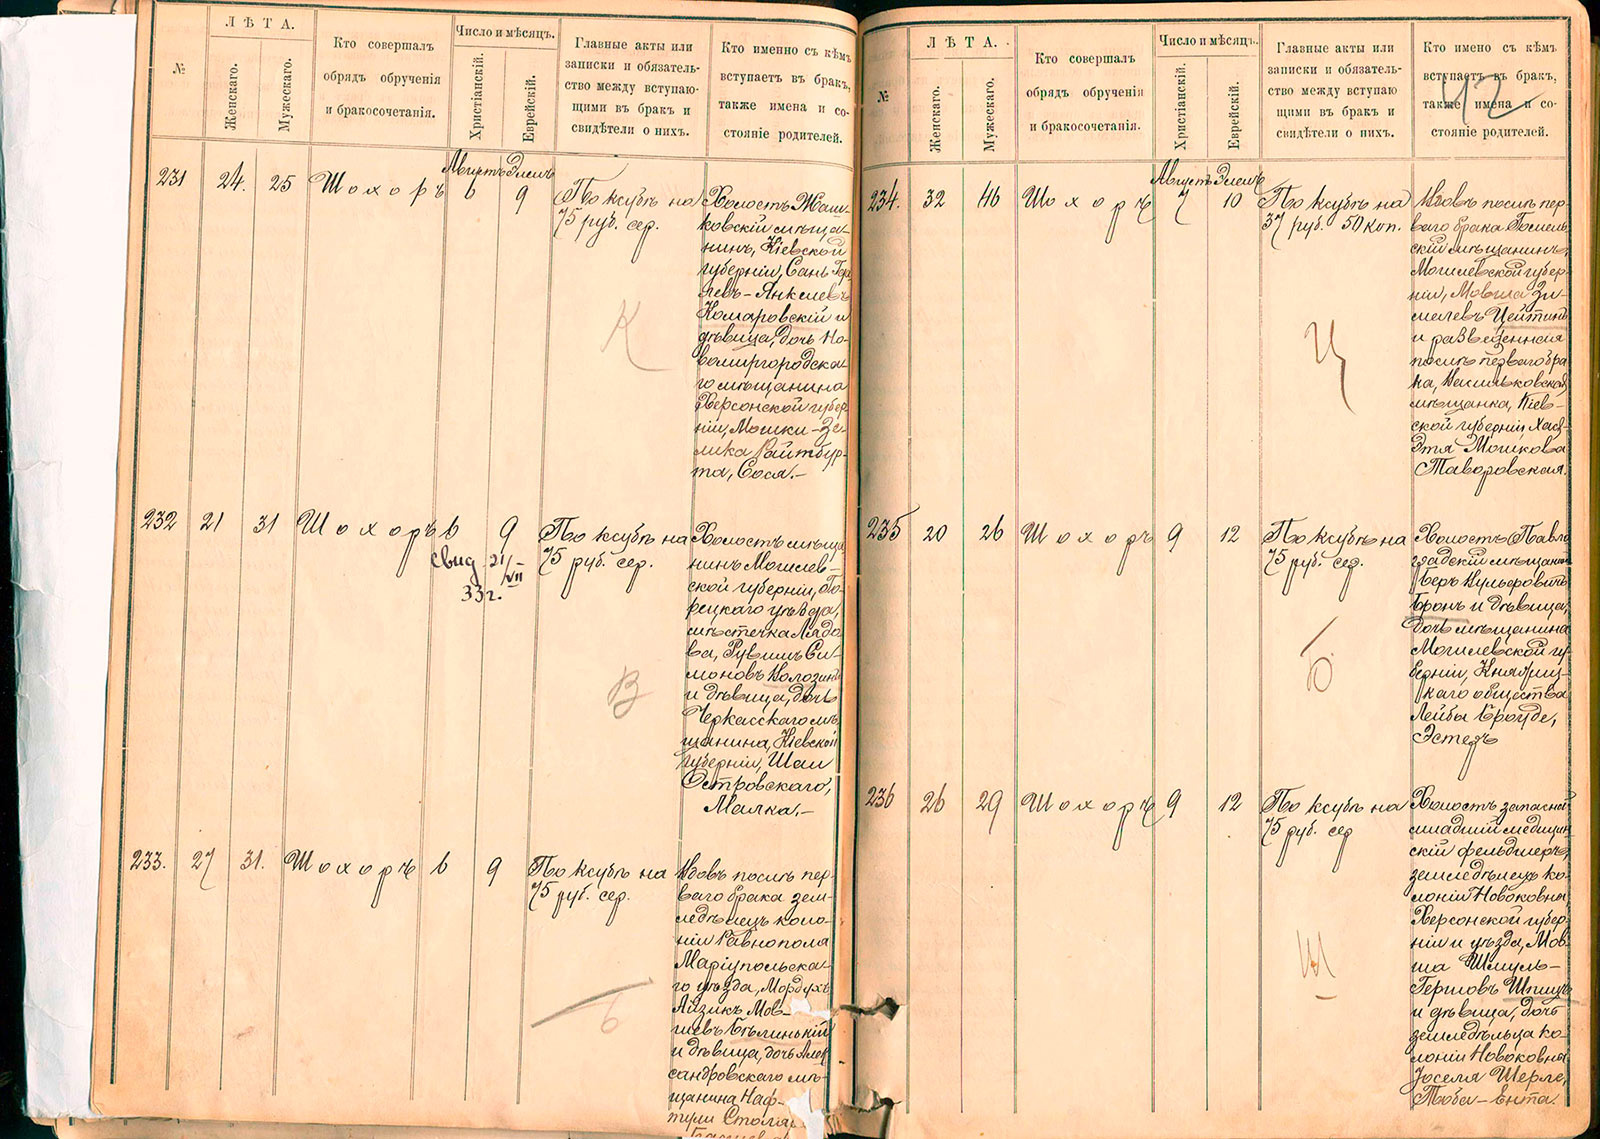 №
ЛѢТА.
Женскаго.
Мужескаго.
Кто совершалъ
обрядъ обрученія
и бракосочетанія.
Число и мѣсяцъ.
Христіанскій.
Еврейскій.
Главные акты или
записки и обязатель-
ство между вступаю-
щими въ бракъ и
свидѣтели о нихъ.
Кто именно съ кѣмъ
вступаетъ въ бракъ,
также имена и со-
стояніе родителей.
231
24.
25
Шохоръ
Августъ Элелъ
6
9
По ксубѣ на
75 руб. сер.
К
Холостъ Жаш-
ковскій мѣща-
нинъ, Кіевской
губерніи,
левъ-Янкелевъ
Комаровскій и
дѣвица, дочь Но-
вомиргородска-
го мѣщанина
Херсонской губер-
ніи, Мошки-Зе-
лика Райтбур-
та, Сося.-
232
21
31
Шохоръ
6
9
свид. 21/VII
33 г.
По ксубѣ на
75 руб. сер.
В
Холостъ мѣща-
нинъ Могилев-
ской губерніи, Го-
рецкаго уѣзда,
мѣстечка Лядо-
ва, Рувимъ Си-
моновъ
и дѣвица, дочь
Черкасскаго мѣ-
щанина, Кіевской
губерніи, Шаи
Островскаго,
Малка.-
233.
27
31.
Шохоръ
6
9
По ксубѣ на
75 руб. сер.
Б
Вдовъ послѣ пер-
ваго брака зем-
ледѣлецъ коло-
ніи Равнополя
Маріупольска-
го уѣзда, Мордухъ
Айзикъ Мов-
шевъ Бѣлинькій
и дѣвица, дочь Алек
сандровскаго мѣ-
щанина Наф-
тули
№
ЛѢТА.
Женскаго.
Мужескаго.
Кто совершалъ
обрядъ обрученія
и бракосочетанія.
Число и мѣсяцъ.
Христіанскій.
Еврейскій.
Главные акты или
записки и обязатель-
ство между вступаю
щими въ бракъ и
свидѣтели о нихъ.
Кто имено съ кѣмъ
вступаетъ въ бракъ,
также имена и со-
стояніе родителей.
42
234.
32
46
Шохоръ
Августъ Элелъ
7
10
По ксубѣ на
37 руб. 50 коп.
Ц
Вдовъ послѣ пер-
ваго брака Гомель-
скій мѣщанинъ,
Могилевской губер-
ніи, Мовша Зи-
мелевъ Цейтлинъ
и разведенная
послѣ перваго бра
ка, Васильковская
мѣщанка, Кіев-
ской губерніи Хая-
Этя Мошкова
Таворовская.
235
20
26
Шохоръ
9
12
По ксубѣ на
75 руб. сер.
Б
Холостъ Павло
градскій мѣщанинъ
Беръ Вульфовичъ
Бронъ и дѣвица,
дочь мѣщанина
Могилевской гу-
берніи, Княжиц-
каго общества
Лейбы Броуде,
Эстеръ
236
26
29
Шохоръ
9
12
По ксубѣ на
75 руб. сер
Ш
Холостъ запасной
младшій медицин
скій фельдшеръ,
земледѣлецъ ко-
лоніи Новоковна,
Херсонской губер-
ніи и уѣзда, Мов-
ша Шмуль-
Гершовъ Шпицъ
и дѣвица, дочь
земледѣльца ко-
лоніи Новоковна
Іоселя Шерле,
Тоба-Ента.